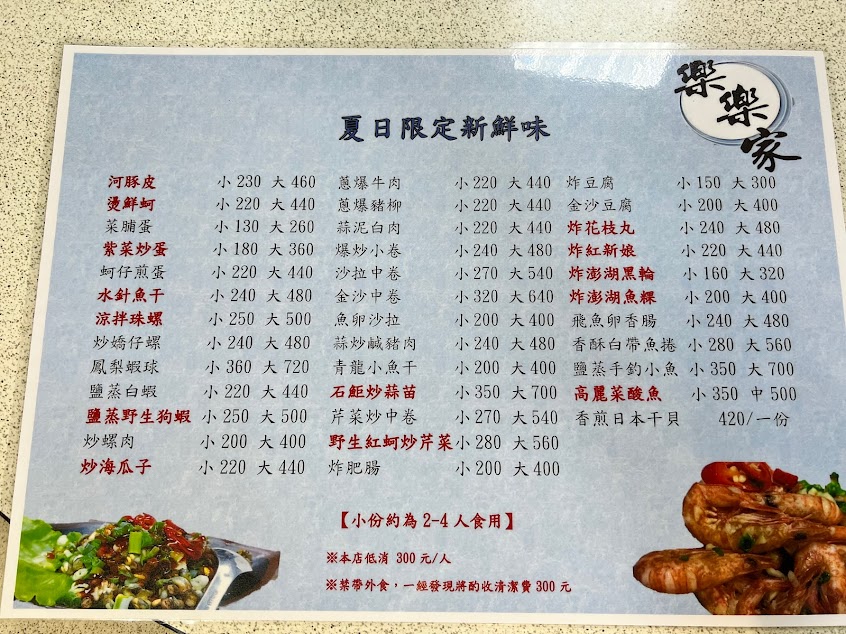 樂樂家
夏日限定新鮮味
河豚皮 小 230 大 460
燙鮮蚵 小 220 大 440
菜脯蛋 小 130 大 260
紫菜炒蛋 小 180 大 360
蚵仔煎蛋 小 220 大 440
水針魚干 小 240 大 480
涼拌珠螺 小 250 大 500
炒嬌仔螺 小 240 大 480
鳳梨蝦球 小 360 大 720
鹽蒸白蝦 小 220 大 440
鹽蒸野生狗蝦 小 250 大 500
炒螺肉 小 200 大 400
炒海瓜子 小 220 大 440
蔥爆牛肉 小 220 大 440
蔥爆豬柳 小 220 大 440
蒜泥白肉 小 220 大 440
爆炒小卷 小 240 大 480
沙拉中卷 小 270 大 540
金沙中卷 小 320 大 640
魚卵沙拉 小 200 大 400
蒜炒鹹豬肉 小 240 大 480
青龍小魚干 小 200 大 400
石鉅炒蒜苗 小 350 大 700
芹菜炒中卷 小 270 大 540
野生紅蚵炒芹菜 小 280 大 560
炸肥腸 小 200 大 400
炸豆腐 小 150 大 300
金沙豆腐 小 200 大 400
炸花枝丸 小 240 大 480
炸紅新娘 小 220 大 440
炸澎湖黑輪 小 160 大 320
炸澎湖魚粿 小 200 大 400
飛魚卵香腸 小 240 大 480
香酥白帶魚捲 小 280 大 560
鹽蒸手釣小魚 小 350 大 700
高麗菜酸魚 小 350 中 500
香煎日本干貝 420/一份
【小份約為 2-4 人食用】
※本店低消 300 元/人
※禁帶外食，一經發現將酌收清潔費 300 元